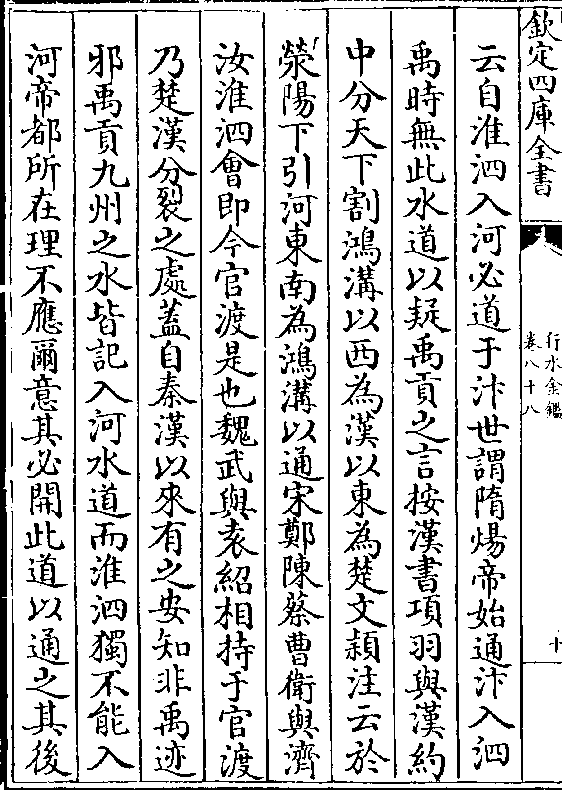 欽定四庫全書
行水金鑑
卷八十八
十
云自淮泗入河必道于汴世謂隋煬帝始通汴入泗
禹時無此水道以疑禹貢之言按漢書項羽與漢約
中分天下割鴻溝以西為漢以東為楚文穎注云於
滎陽下引河東南為鴻溝以通宋鄭陳蔡曹衛與濟
汝淮泗會即今官渡是也魏武與袁紹相持于官渡
乃楚漢分裂之處蓋自秦漢以來有之安知非禹迹
邪禹貢九州之水皆記入河水道而淮泗獨不能入
河帝都所在理不應爾意其必開此道以通之其後